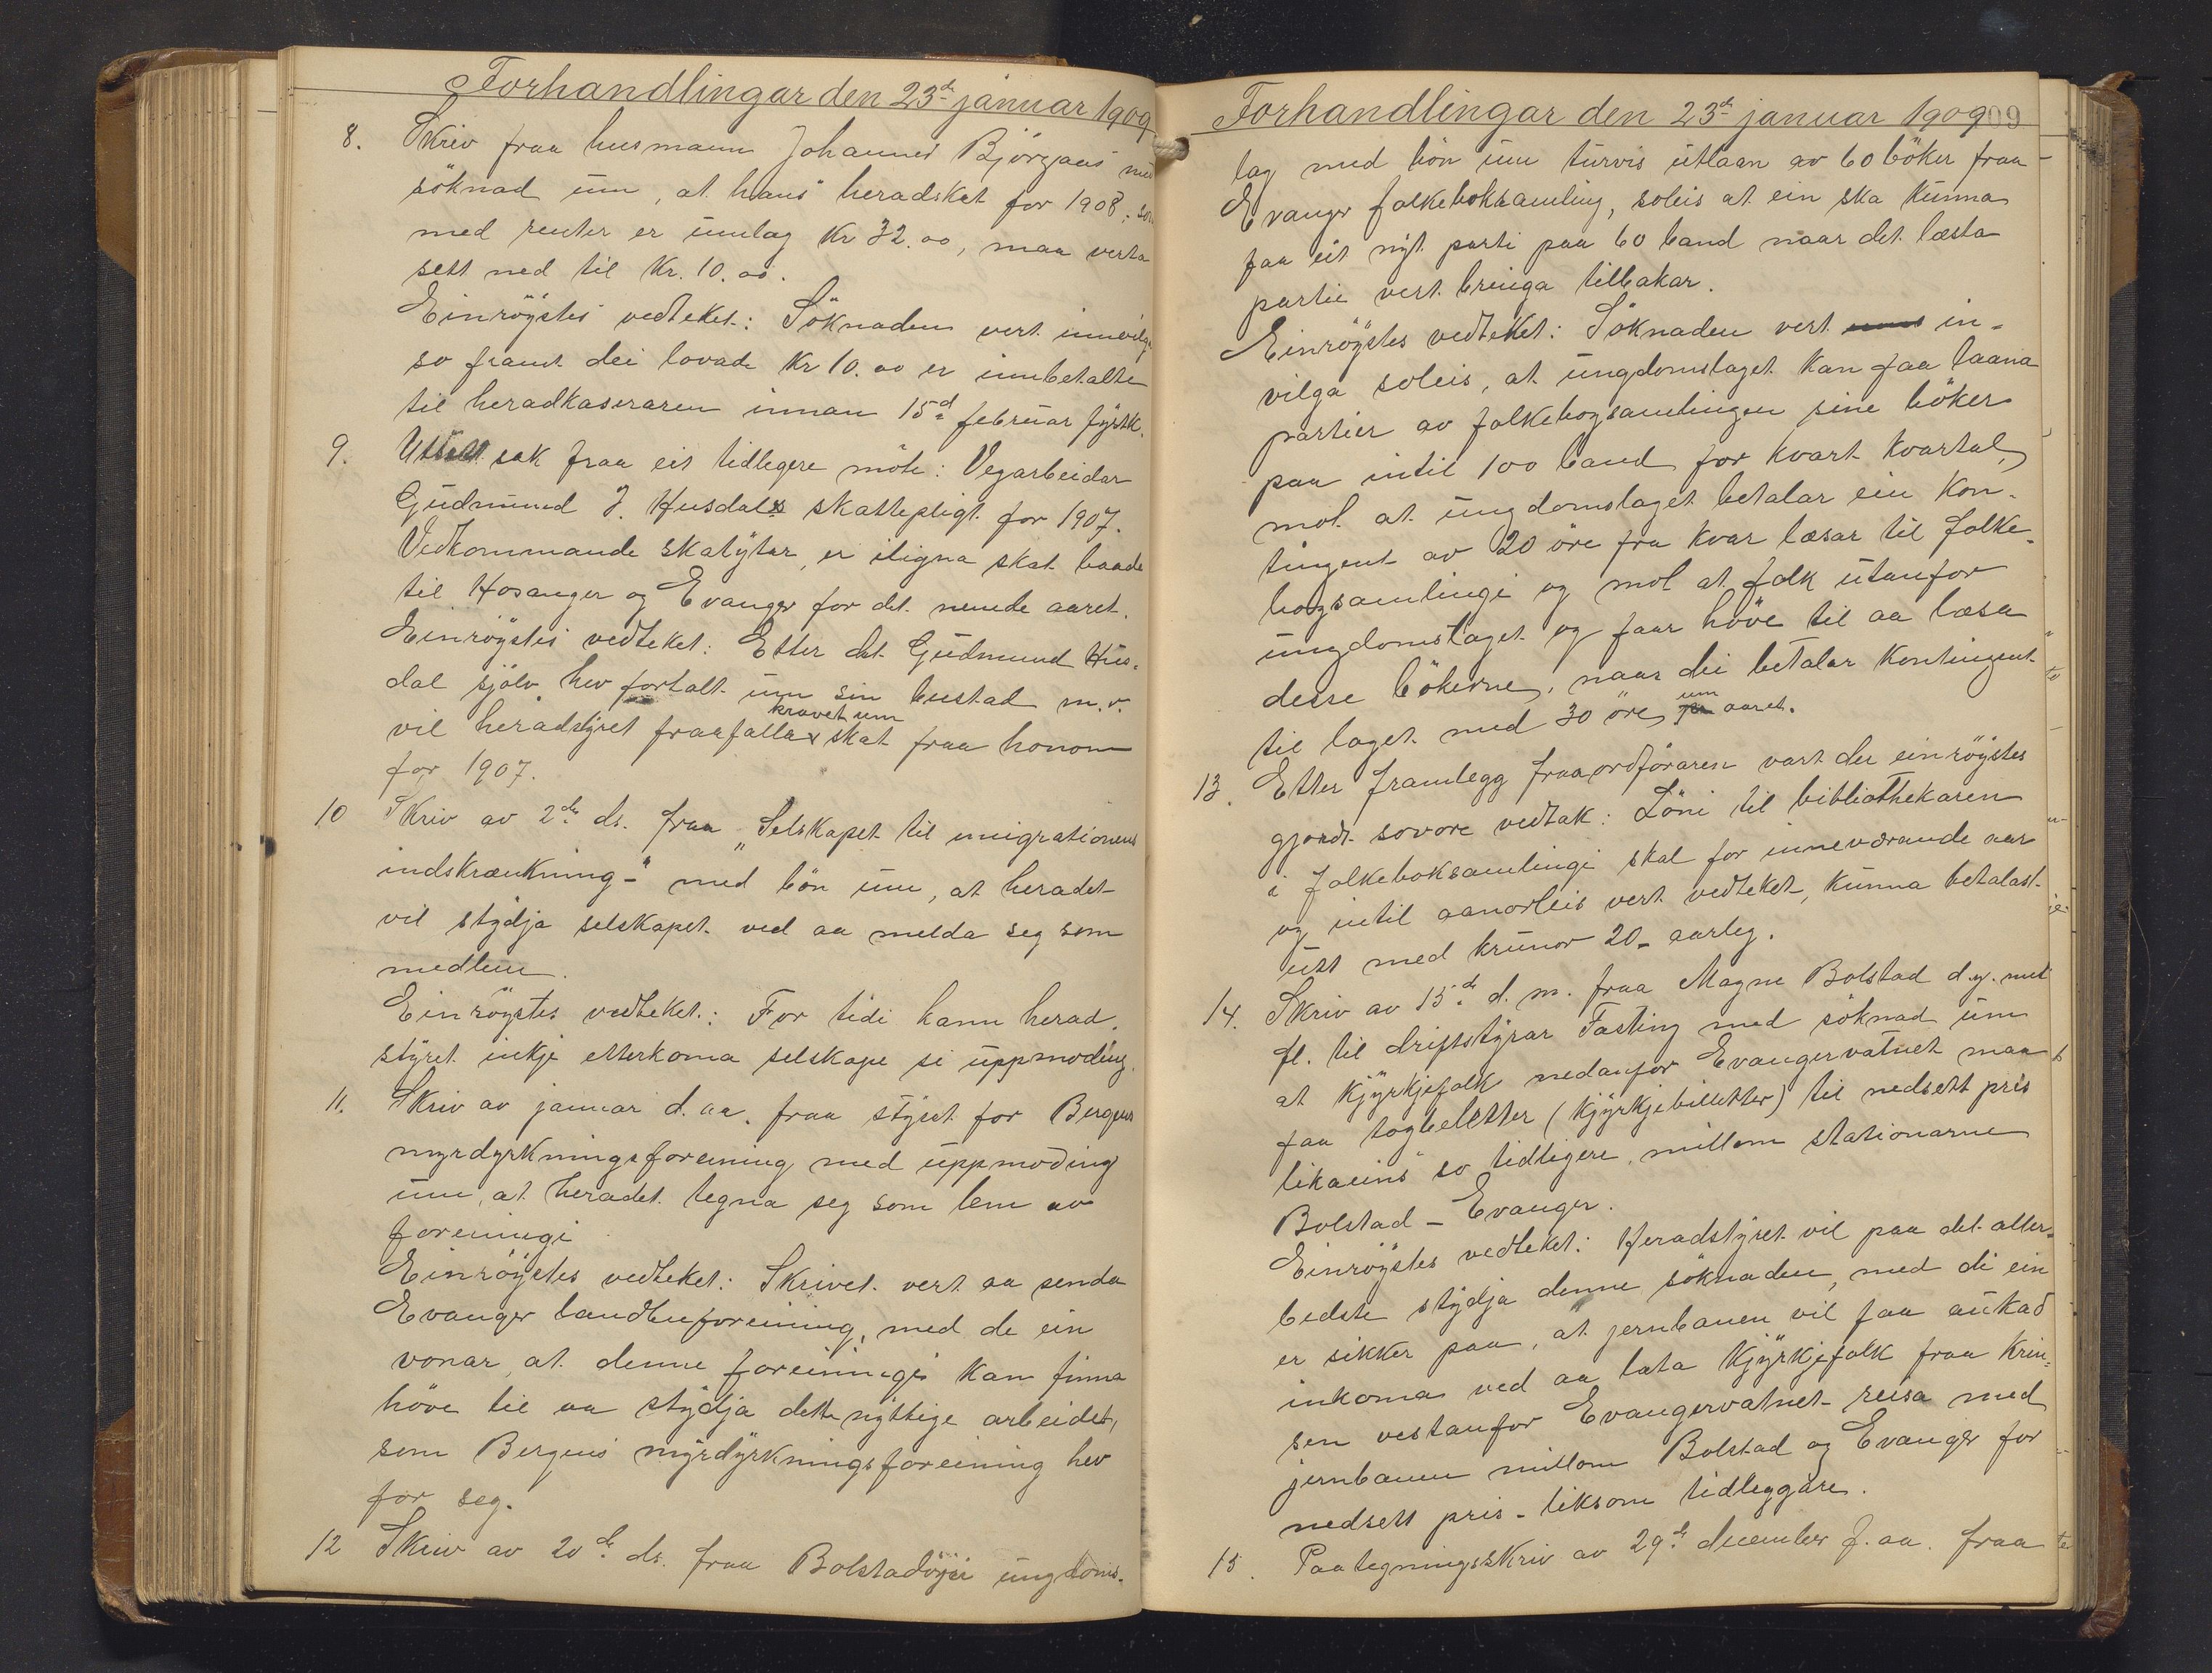 Forhandlingar den 23de januar 1909
8. Skriv fraa husmann Johannes Björgaas med
söknad um, at hans heradskat for 1908, som
med renter er umlag Kr 32.00, maa verta
sett ned til Kr. 10.00.
Einröystes vedteket: Söknaden vert innvilga
so framt dei lovade Kr 10.00 er innbetalte
til heradkaseraren innan 15de februar fyrstk.
9. Utsett sak fraa eit tidlegere möte: Vegarbeidar
Gudmund J. Husdals skattepligt for 1907.
Vedkommande skatytar, er iligna skat baade
til Hosanger og Evanger for det nemde aaret.
Einröystes vedteket: Etter det Gudmund Hus-
dal sjölv hev fortalt um sin bustad m.v.
vil heradstyret fraafalla kravet um skat fraa honom
for 1907.
10 Skriv av 2de ds. fraa "Selskapet til emigrationens
indskrænkning" med bön um, at heradet
vil stydja selskapet ved aa melda seg som
medlem.
Einröystes vedteket: For tidi kann herad-
styret inkje etterkoma selskape si uppmoding.
11. Skriv av januar d. aa. fraa styret for Bergens
myrdyrkningsforeining med uppmoding
um, at heradet tegna seg som lem av
foreiningi
Einröystes vedteket: Skrivet vert aa senda
Evanger landbuforeining, med de ein
vonar, at denne foreiningi kan finna
höve til aa stydja dette nyttige arbeidet,
som Bergens myrdyrkningsforeining hev
for seg.
12 Skriv av 20de ds. fraa Bolstadöyri ungdoms-
Forhandlingar den 23de januar 1909
lag med bön um turvis utlaan av 60 böker fraa
Evanger folkeboksamling, soleis at ein ska kunna
faa eit nyt parti paa 60 band naar det læsta
partie vert bringa tilbakar.
Einröystes vedteket: Söknaden vert in-
vilga soleis, at ungdomslaget kan faa laana
partier av folkebogsamlingen sine böker
paa intil 100 band for kvart kvartal,
mot at ungdomslaget betalar ein kon-
tingent av 20 öre fra kvar læsar til folke-
bogsamlingi og mot at folk utanfor
ungdomslaget og faar höve til aa læsa
desse bökerne, naar dei betalar kontingent
til laget med 30 öre um aaret.
13. Etter framlegg fraa ordföraren vart der einröystes
gjordt sovore vedtak: Löni til bibliothekaren
i folkeboksamlingi skal for inneværande aar
og intil aanorleis vert vedteket, kunna betalast
ust med krunor 20- aarleg.
14. Skriv av 15de d. m. fraa Magne Bolstad d.y. med
fl. til driftstyrar Fasting med söknad um
at kjyrkjefolk nedanfor Evangervatnet maa
faa togbeletter (kjyrkjebilletter) til nedsett pris
likaeins so tidligere, millom stationarne
Bolstad - Evanger.
Einröystes vedteket: Heradstyret vil paa det aller-
bedste stydja denne söknaden, med di ein
er sikker paa, at jernbanen vil faa aukad
inkoma ved aa lata kjyrkjefolk fraa krin-
sen vestanfor Evangervatnet reisa med
jernbanen millom Bolstad og Evanger for
nedsett pris - liksom tidleggare.
15. Paategningsskriv av 29de december f. aa. fraa